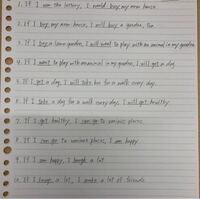 1. If I won the lottery, I would buy my own house.
2. If I buy my own house, I will buy a garden, too.
3. If I buy a some garden, I will want to play with an animal in my garden.
4. If I want to play with an animal in my garden, I will get a dog.
5. If I get a dog, I will take her for a walk every day.
6. If I take a dog for a walk every day, I will get healthy.
7. If I get healthy, I can go to various places.
8. If I can go to various places, I am happy.
9. If I am happy, I laugh a lot.
10. If I laugh a lot, I make a lot of friends.